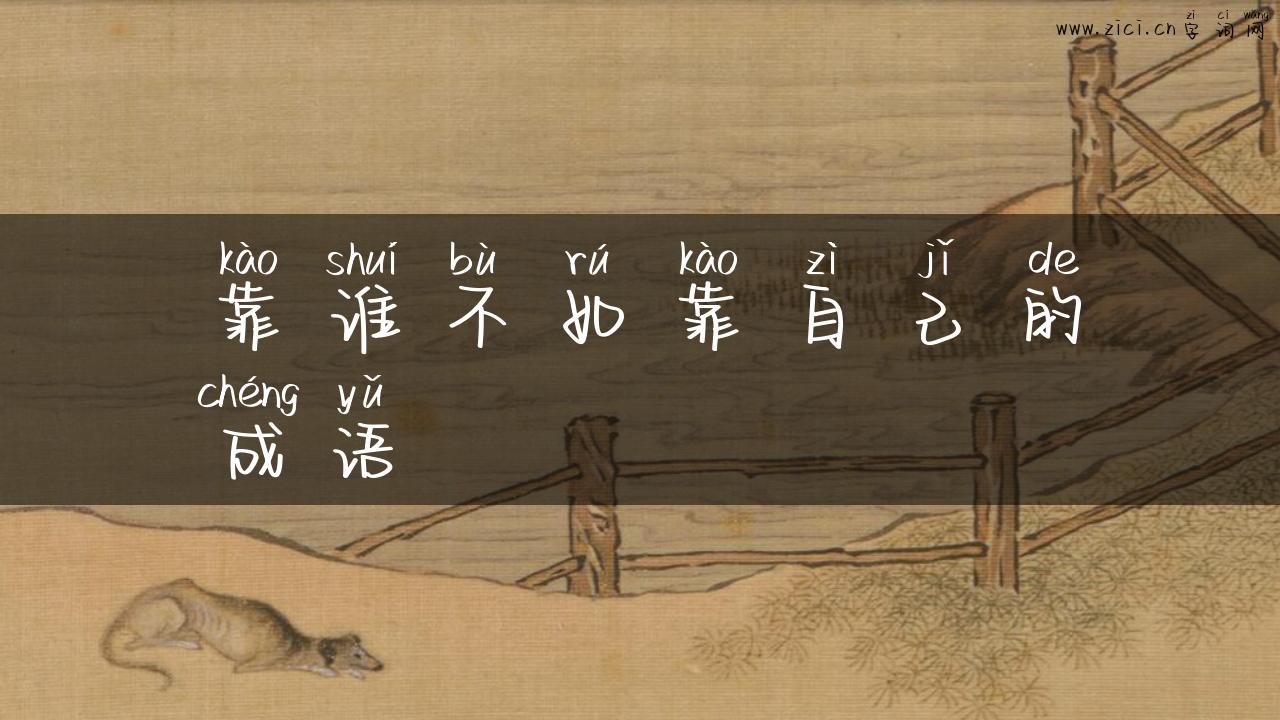 zì cí wǎng
www.zici.cn 字词网
kào shuí bù rú kào zì jǐ de
靠谁不如靠自己的
chéng yǔ
成语